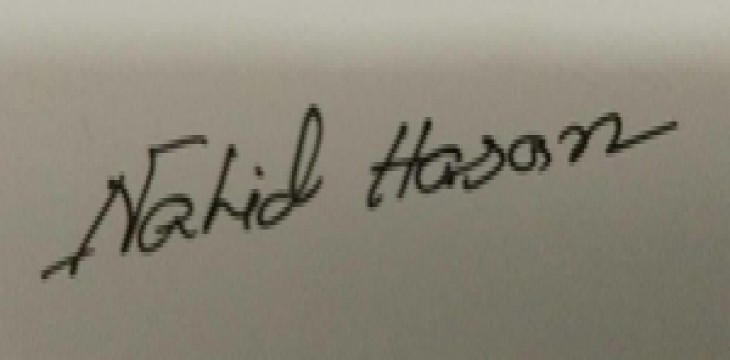 Nahid Hasan